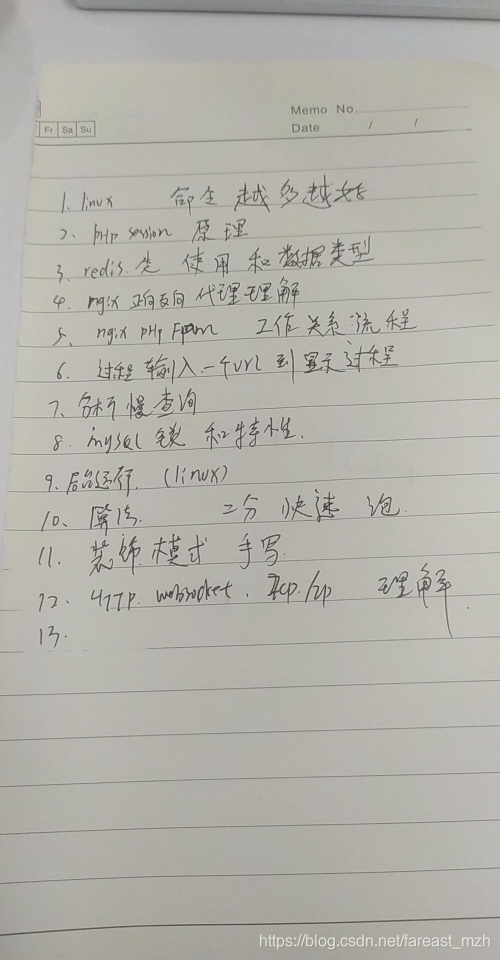 Memo No.
Date / /
Fr Sa Su
1. linux 命令 越多越好
2. php session 原理
3. redis 使用 和 数据类型
4. ngix 正向反向 代理 理解
5. ngix php Fpm 工作关系流程
6. 过程 输入一个url 到 显示过程
7. 分析慢查询
8. mysql 锁 和特性.
9. 后台运行 (linux)
10. 算法. 二分 快速 泡.
11. 装饰模式 手写.
12. HTTP. websocket. Tcp/Ip 理解.
13.
https://blog.csdn.net/fareast_mzh